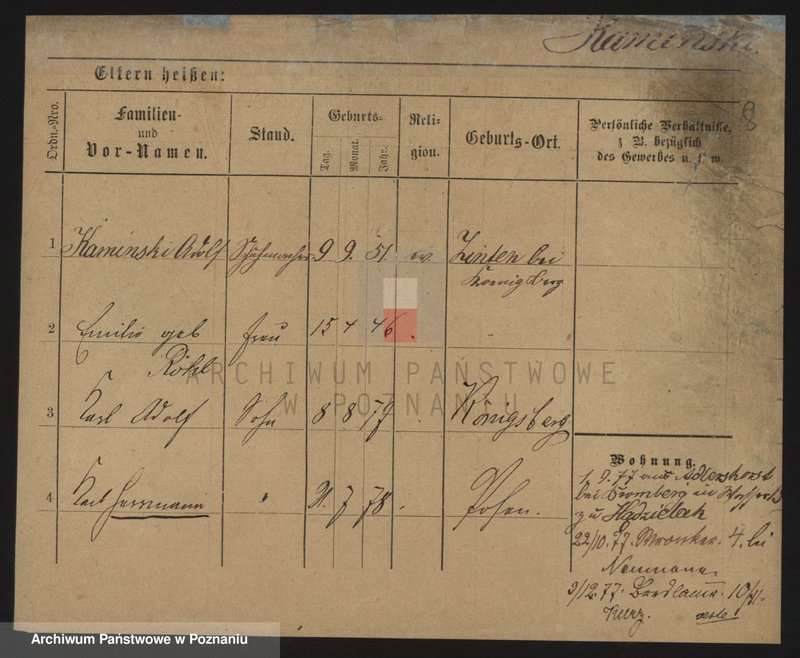 Kaminski.
Eltern heißen:
Ordn.-Nro.
Familien-
und
Vor-Namen.
Stand.
Geburts-
Tag.
Monat.
Jahr.
Reli-
gion.
Geburts-Ort.
Persönliche Verhältniße,
z B. bezüglich
des Gewerbes u. s w.
8
1 Kaminski Adolf Schuhmacher 9 9. 51. ev. Zinten bei
Koenigsberg
2 Emilie geb Frau 15 4 46
Röhl
3 Karl Adolf Sohn 8 8 Königsberg
4 Karl Herrmann " 21. 7 78. Posen.
Wohnung.
1. 9. 77 aus Adlershorst
bei Bromberg in
zu
22/10. 77. Wronker. 4. bei
Neumann.
3/12. 77. 10/11.
Kurz.
ARCHIWUM PAŃSTWOWE
W POZNANIU
Archiwum Państwowe w Poznaniu